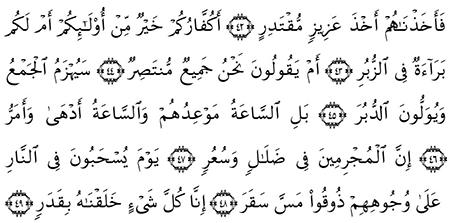 فَأَخَذْنَاهُمْ أَخْذَ عَزِيزٍ مُّقْتَدِرٍ ﴿٤٢﴾ أَكُفَّارُكُمْ خَيْرٌ مِّنْ أُوْلَـٰئِكُمْ أَمْ لَكُم
بَرَاءَةٌ فِى ٱلزُّبُرِ ﴿٤٣﴾ أَمْ يَقُولُونَ نَحْنُ جَمِيعٌ مُّنتَصِرٌ ﴿٤٤﴾ سَيُهْزَمُ ٱلْجَمْعُ
وَيُوَلُّونَ ٱلدُّبُرَ ﴿٤٥﴾ بَلِ ٱلسَّاعَةُ مَوْعِدُهُمْ وَٱلسَّاعَةُ أَدْهَىٰ وَأَمَرُّ
﴿٤٦﴾ إِنَّ ٱلْمُجْرِمِينَ فِى ضَلَـٰلٍ وَسُعُرٍ ﴿٤٧﴾ يَوْمَ يُسْحَبُونَ فِى ٱلنَّارِ
عَلَىٰ وُجُوهِهِمْ ذُوقُوا۟ مَسَّ سَقَرَ ﴿٤٨﴾ إِنَّا كُلَّ شَىْءٍ خَلَقْنَـٰهُ بِقَدَرٍ ﴿٤٩﴾